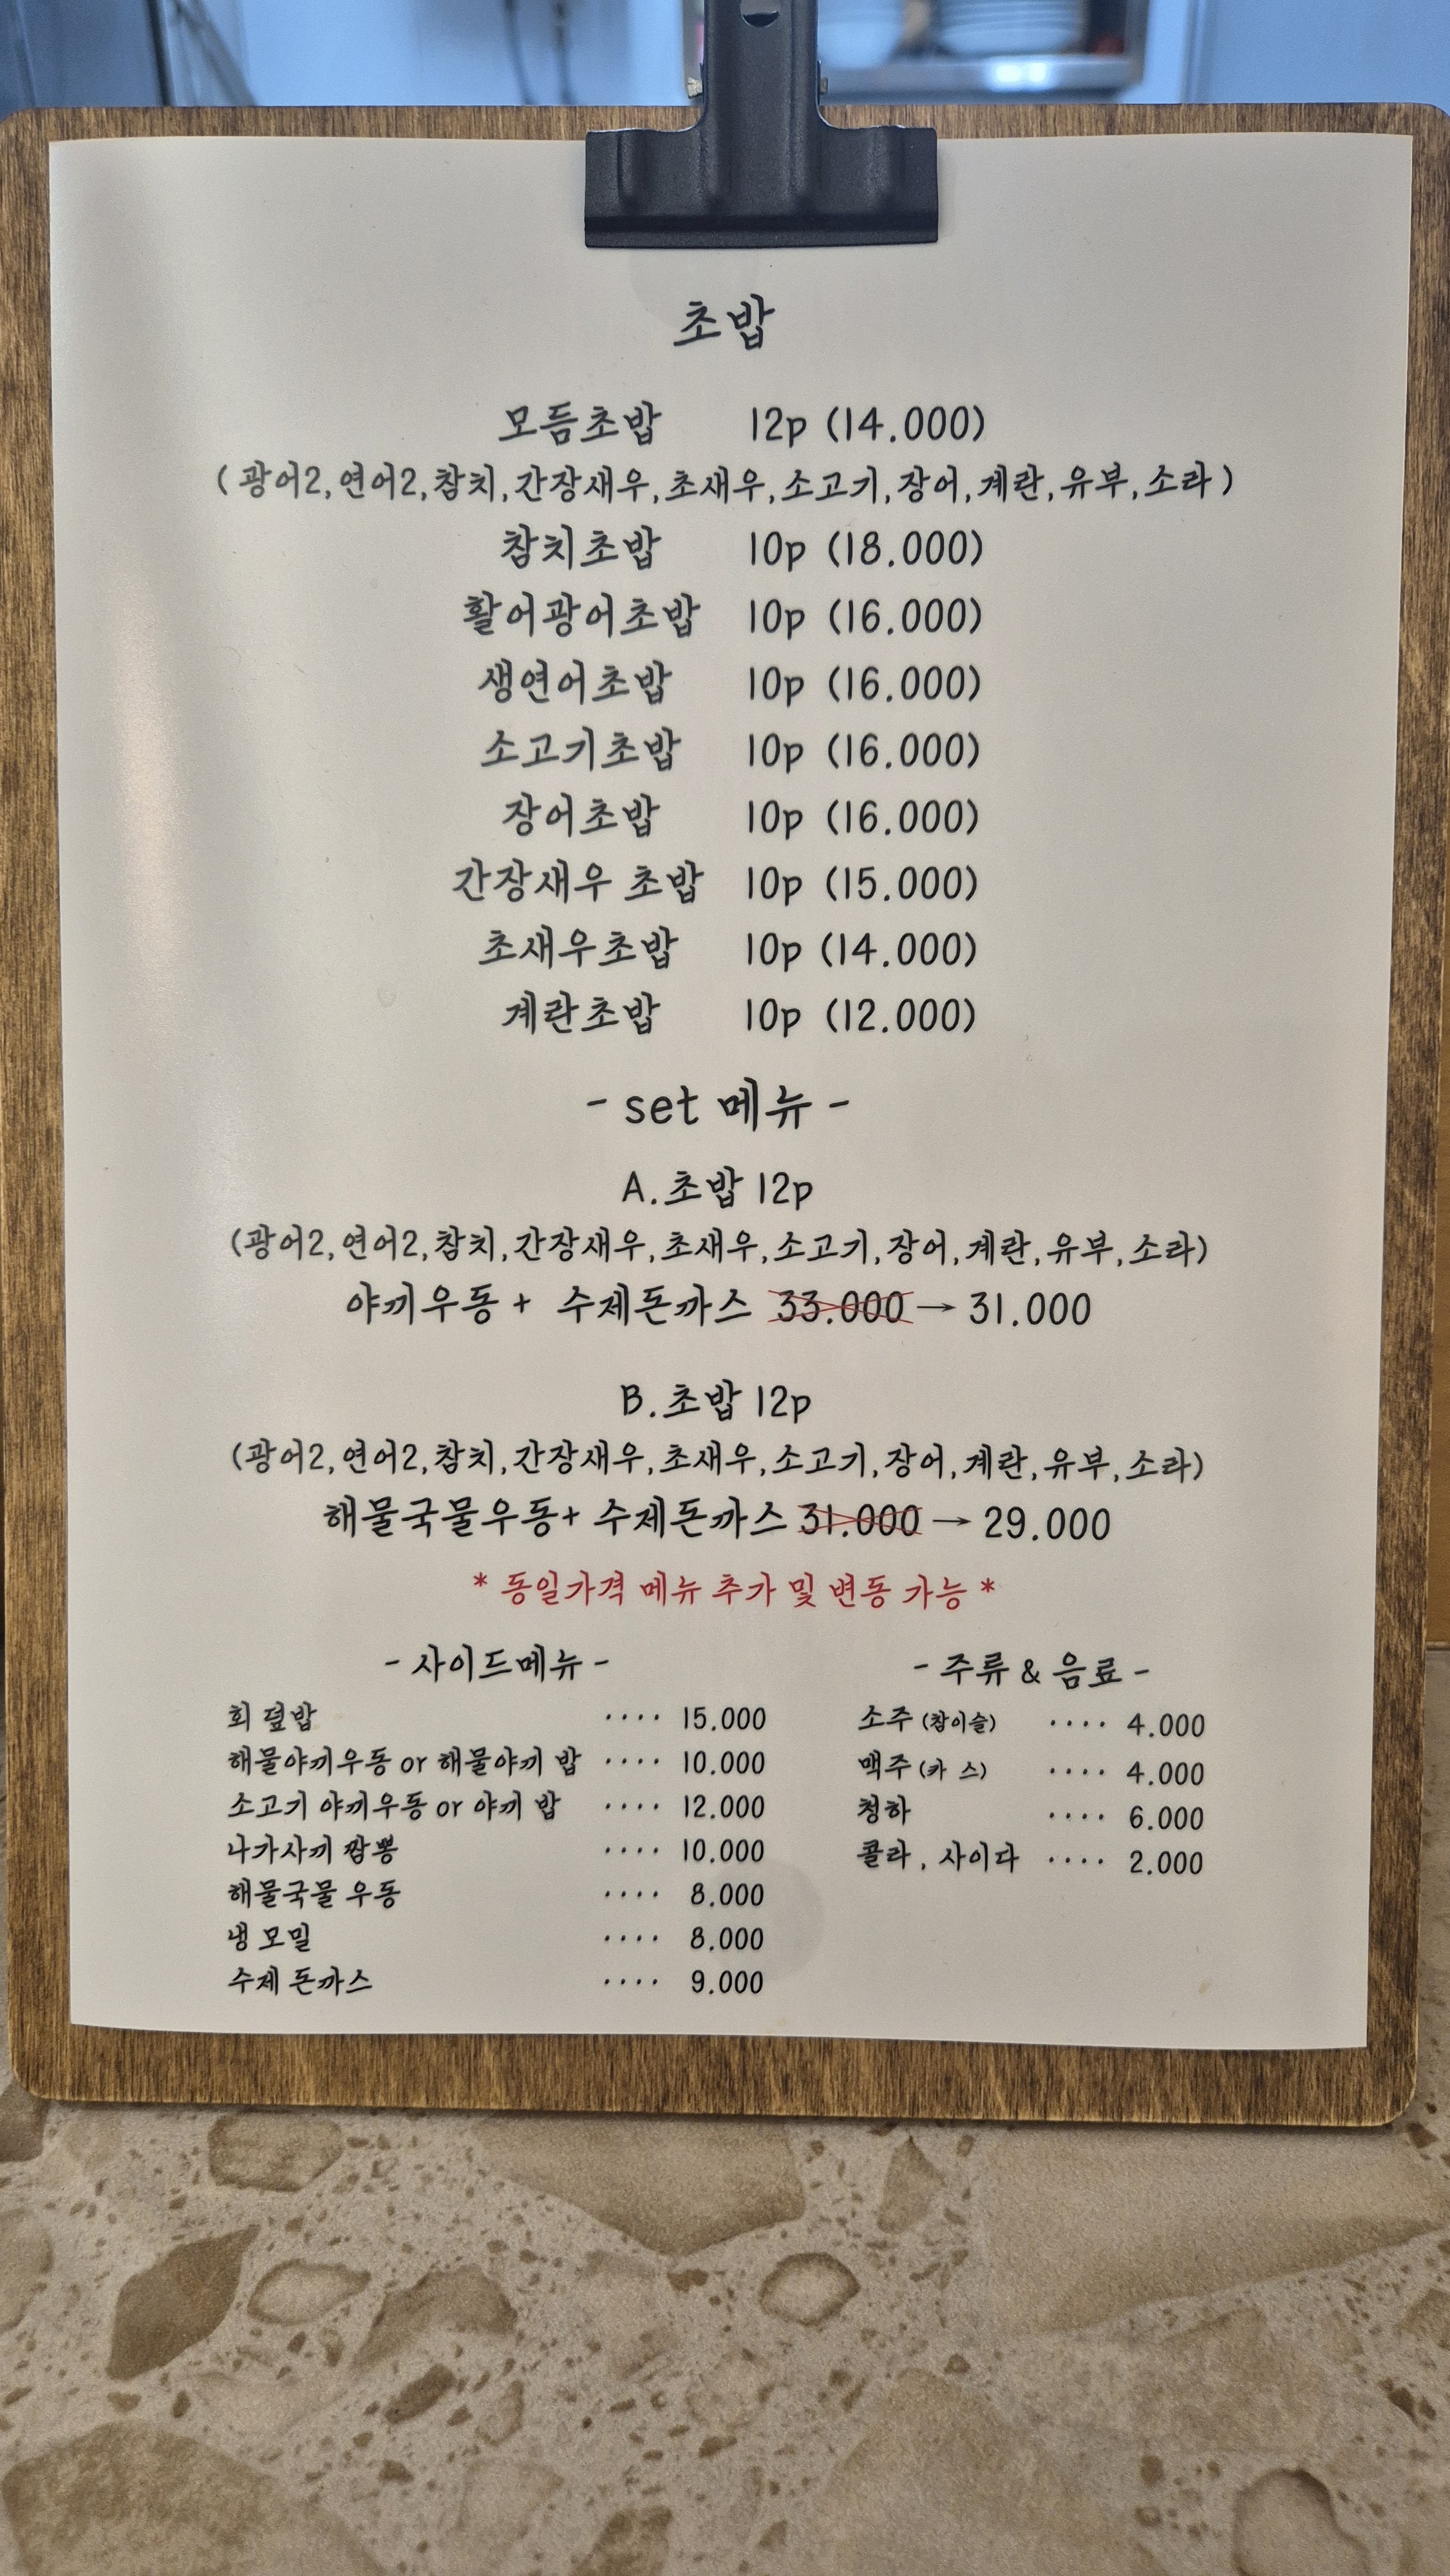 초밥
모듬초밥 12p (14.000)
( 광어2,연어2,참치,간장새우,초새우,소고기,장어,계란,유부,소라 )
참치초밥 10p (18.000)
활어광어초밥 10p (16.000)
생연어초밥 10p (16.000)
소고기초밥 10p (16.000)
장어초밥 10p (16.000)
간장새우 초밥 10p (15.000)
초새우초밥 10p (14.000)
계란초밥 10p (12.000)
- set 메뉴 -
A.초밥 12p
(광어2,연어2,참치,간장새우,초새우,소고기,장어,계란,유부,소라)
야끼우동 + 수제돈까스 33.000 → 31.000
B.초밥 12p
(광어2,연어2,참치,간장새우,초새우,소고기,장어,계란,유부,소라)
해물국물우동+ 수제돈까스 31.000 → 29.000
* 동일가격 메뉴 추가 및 변동 가능 *
- 사이드메뉴 -
회 덮밥 .... 15.000
해물야끼우동 or 해물야끼 밥 .... 10.000
소고기 야끼우동 or 야끼 밥 .... 12.000
나가사끼 짬뽕 .... 10.000
해물국물 우동 .... 8.000
냉 모밀 .... 8.000
수제 돈까스 .... 9.000
- 주류 & 음료 -
소주 (참이슬) .... 4.000
맥주 (카 스) .... 4.000
청하 .... 6.000
콜라 , 사이다 .... 2.000